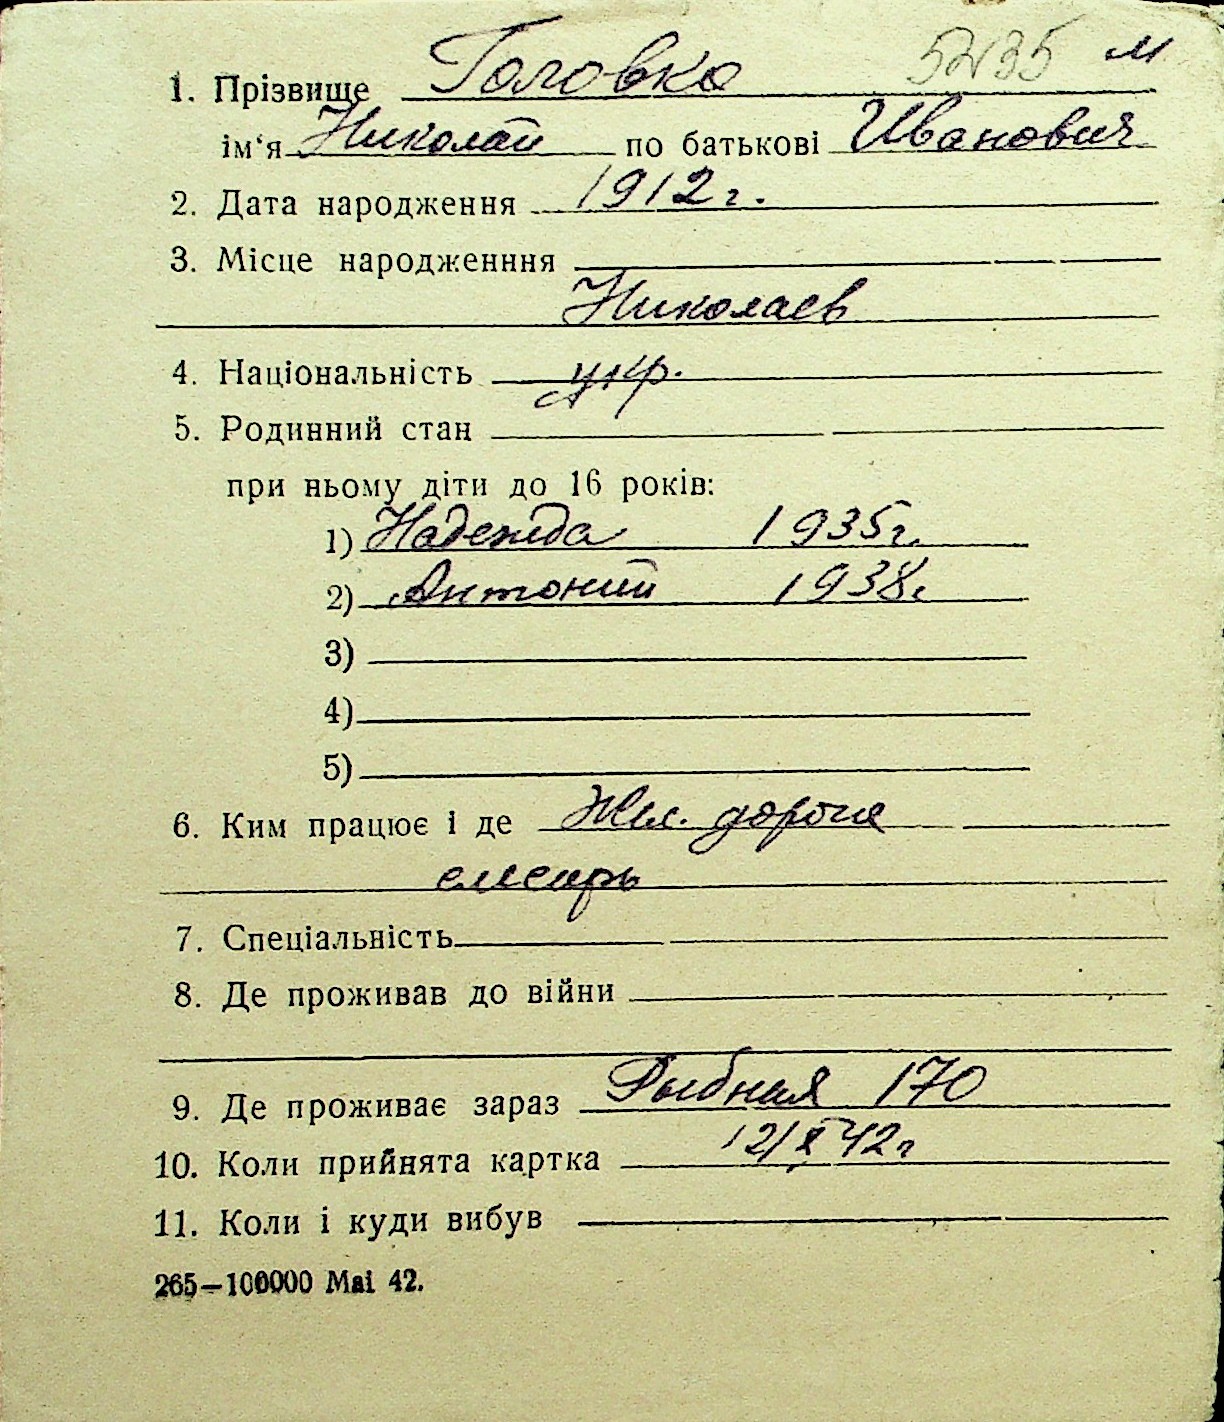 5235 м
1. Прізвище Головко
ім'я Николай по батькові Иванович
2. Дата народження 1912 г.
3. Місце народженння
Николаев
4. Національність укр.
5. Родинний стан
при ньому діти до 16 років:
1) Надежда 1935 г.
2) Антоний 1938 г.
3)
4)
5)
6. Ким працює і де Жел. дорога
слесарь
7. Спеціальність
8. Де проживав до війни
9. Де проживає зараз Рыбная 170
10. Коли прийнята картка 12/X 42 г
11. Коли і куди вибув
265—100000 Mai 42.